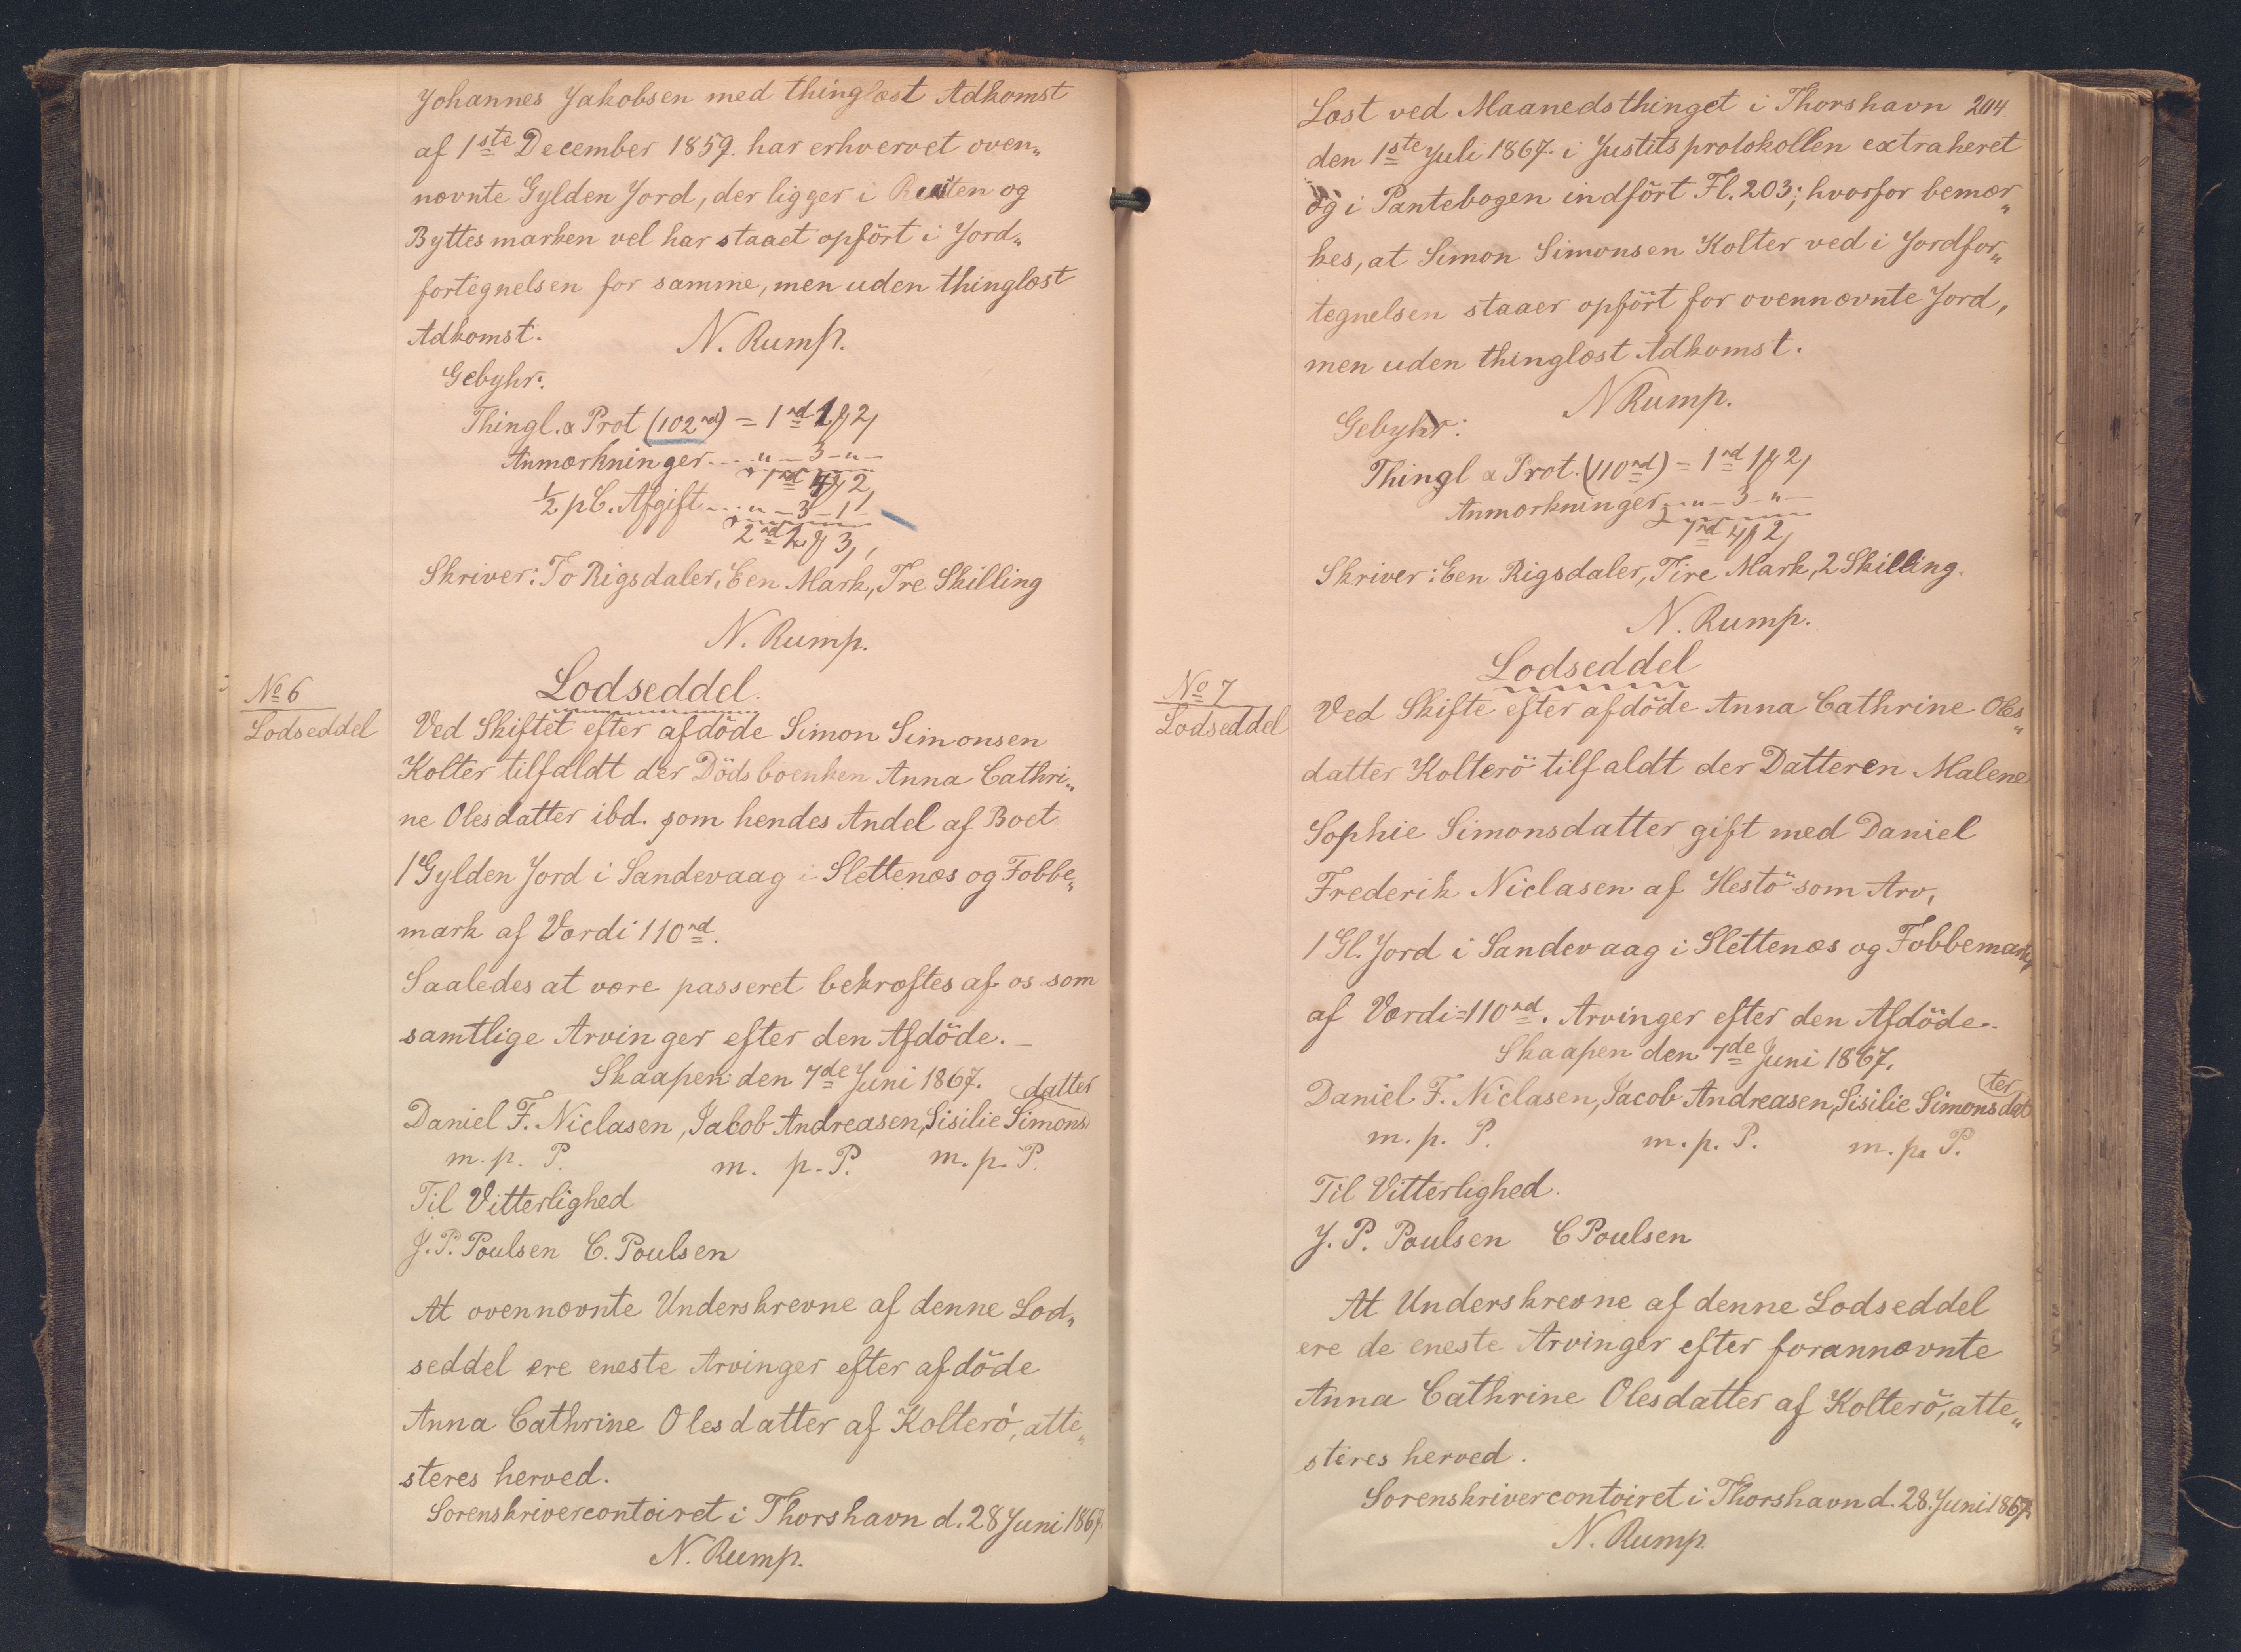 Johannes Jakobsen med thinglæst Adkomst
af 1ste December 1859. har erhvervet oven„
nævnte Gylden Jord, der ligger i og
Byttesmarken vel har staaet opfört i Jord„
fortegnelsen for samme, men uden thinglæst
Adkomst. N. Rump.
Gebyhr.
Thingl. & Prot (102 rd) = 1 rd 1 ꝟ 2,
Anmærkninger .... „ — 3 — „ —
1 rd 4 ꝟ 2,
½ pC. Afgift ... „ — 3 — 1 —
2 rd 1 ꝟ 3,
Skriver: To Rigsdaler, Een Mark, Tre Skilling
N. Rump.
№ 6
Lodseddel
Lodseddel.
Ved Skiftet efter afdöde Simon Simonsen
Kolter tilfaldt der Dödsboenken Anna Cathri„
ne Olesdatter ibd. som hendes Andel af Boet
1 Gylden Jord i Sandevaag i Slettenæs og Fobbe„
mark af Værdi 110 rd.
Saaledes at være passeret bekræftes af os som
samtlige Arvinger efter den Afdöde. —
Skaapen den 7de Juni 1867.
Daniel F. Niclasen, Jacob Andreasen, Sisilie Simons datter
m. p. P. m. p. P. m. p. P.
Til Vitterlighed
J. P. Poulsen C. Poulsen
At ovennævnte Underskrevne af denne Lod„
seddel ere eneste Arvinger efter afdöde
Anna Cathrine Olesdatter af Kolterö, atte„
steres herved.
Sorenskrivercontoiret i Thorshavn d. 28 Juni 1867.
N. Rump.
Læst ved Maanedsthinget i Thorshavn 204.
den 1ste Juli 1867. i Justitsprotokollen extraheret
og i Pantebogen indfört Fl. 203; hvorfor bemær„
kes, at Simon Simonsen Kolter ved i Jordfor„
tegnelsen staaer opfört for ovennævnte Jord,
men uden thinglæst Adkomst.
N Rump.
Gebyhr:
Thingl & Prot. (110 rd) = 1 rd 1 ꝟ 2,
Anmærkninger ... „ — 3 — „ —
1 rd 4 ꝟ 2,
Skriver: Een Rigsdaler, Fire Mark, 2 Skilling.
N. Rump.
№ 7
Lodseddel
Lodseddel
Ved Skifte efter afdöde Anna Cathrine Oles„
datter Kolterö tilfaldt der Datteren Malene
Sophie Simonsdatter gift med Daniel
Frederik Niclasen af Hestö som Arv,
1 Gl. Jord i Sandevaag i Slettenæs og Fobbemark,
af Værdi = 110 rd. Arvinger efter den Afdöde.
Skaapen den 7de Juni 1867.
Daniel F. Niclasen, Jacob Andreasen, Sisilie Simonsdatter
m. p. P. m. p. P. m. p. P.
Til Vitterlighed.
J. P. Poulsen C Poulsen
At Underskrevne af denne Lodseddel
ere de eneste Arvinger efter forannævnte
Anna Cathrine Olesdatter af Kolterö, atte„
steres herved.
Sorenskrivercontoiret i Thorshavn d. 28. Juni 1867.
N. Rump.